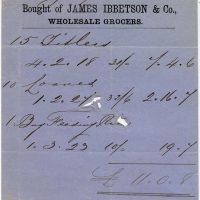 Bought of JAMES IBBETSON & Co.,
WHOLESALE GROCERS.
15
4.2.18 30/- 7.4.6
10 Loaves
1.2.27 33/6 2.16.7
1 Bag
1.3.23 10/- 19.7
£ 11.0.8